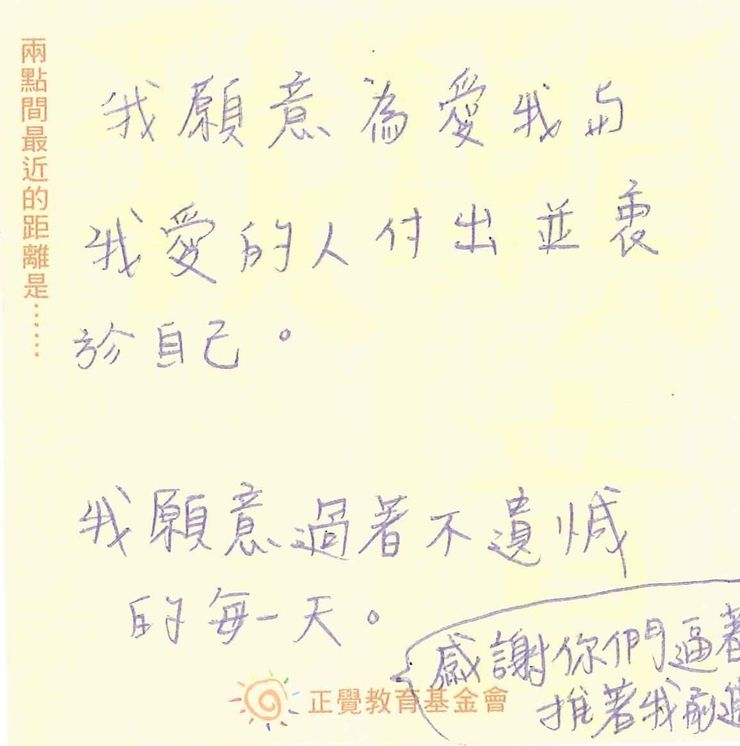 兩點間最近的距離是……
我願意為愛我与
我愛的人付出並衷
於自己。
我願意過著不遺憾
的每一天。
感謝你們逼著
推著我前進
正覺教育基金會